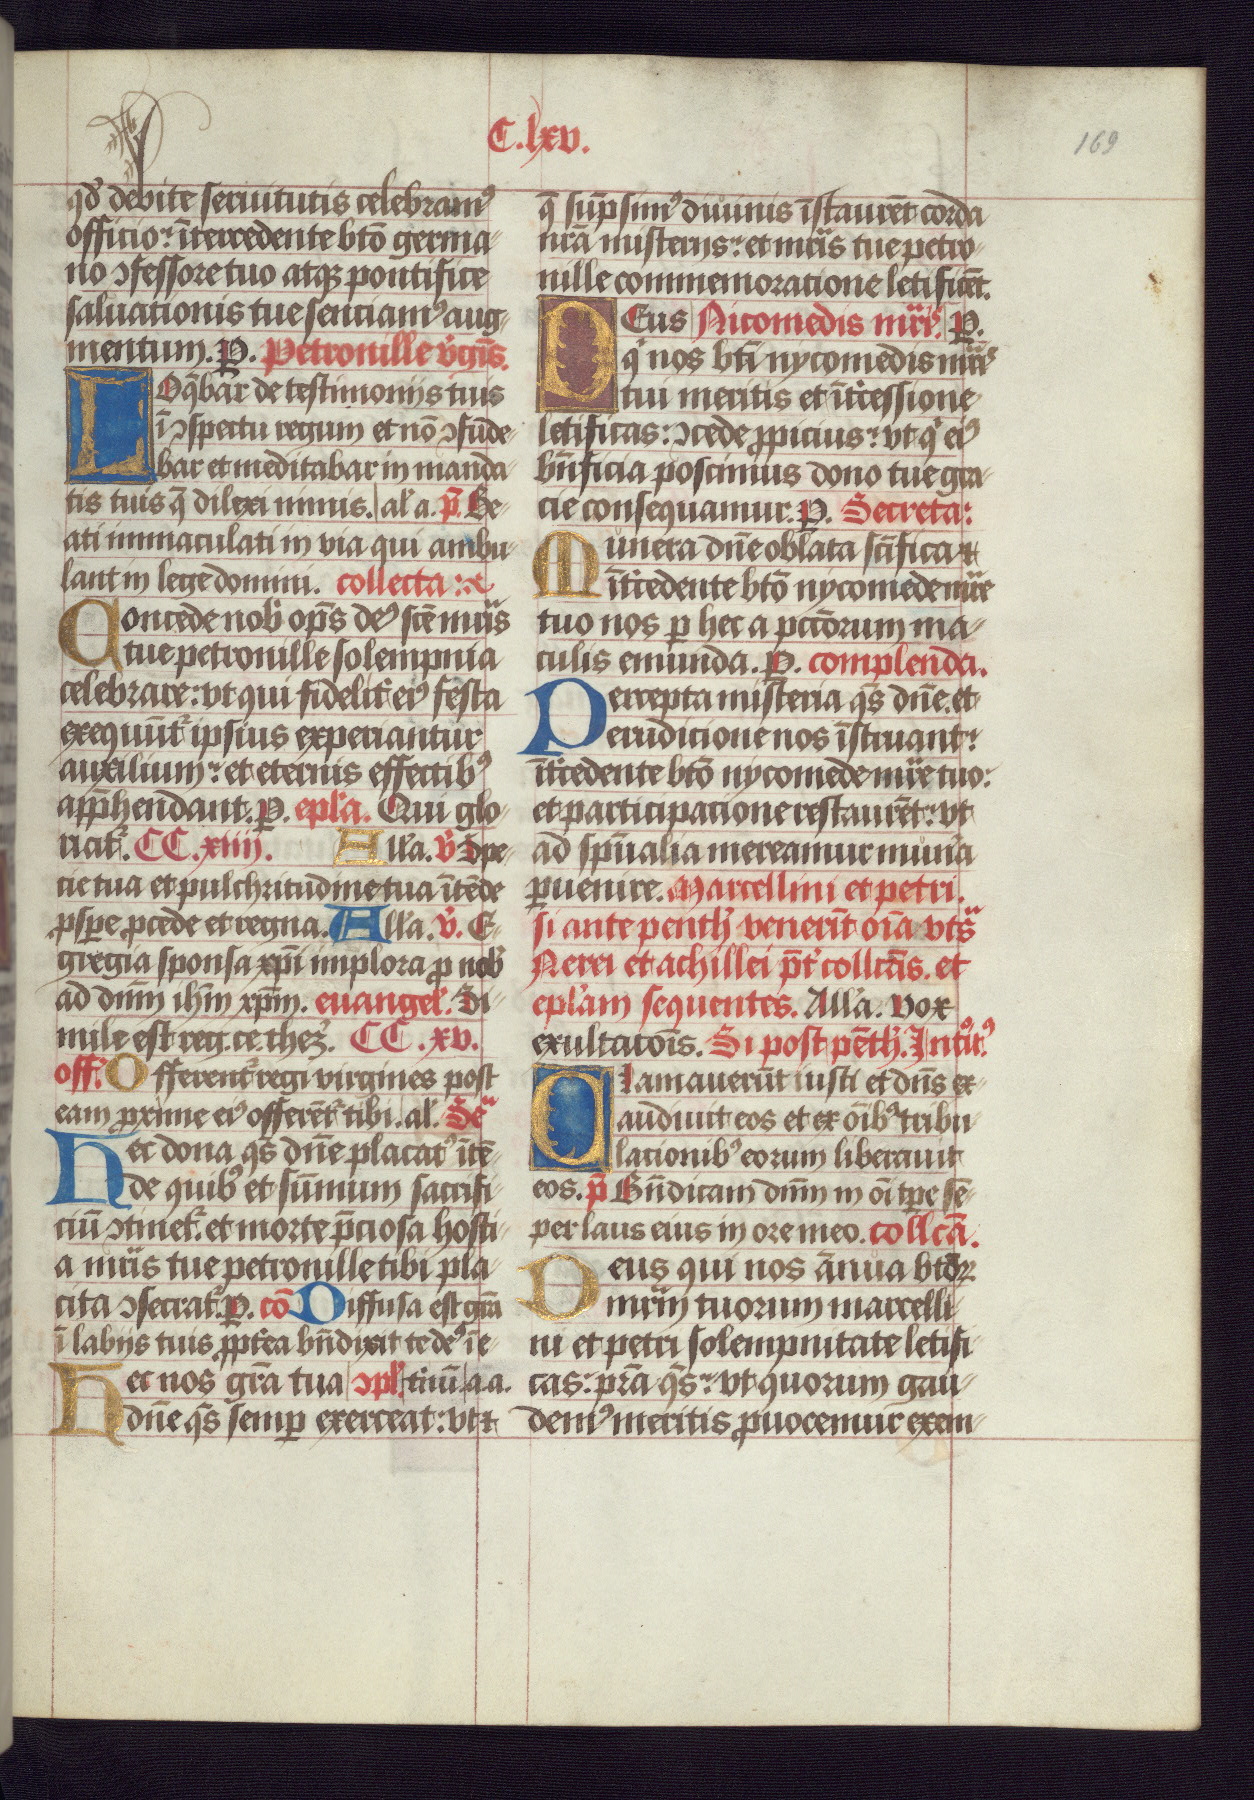 C.lxv.
169
qđ debite seruitutis celebramꝰ
officio: īt̄cedente btō germa-
no ꝯfessore tuo atqꝫ pontifice
saluationis tue senciamꝰ aug-
mentum. P. Petronille v̄gīs.
LOq̄bar de testimonijs tuis
ī ꝯspectu regum et nō ꝯfūde-
bar et meditabar in manda-
tis tuis q̄ dilexi nimis. al' a. p̄. Be-
ati immaculati in via qui ambu-
lant in lege domini. collecta:
Concede nob̾ op̄s deꝰ sc̄e mr̄is
tue petronille solempnia
celebrare: vt qui fidelit̾ eiꝰ festa
exequūt̾ ipsius experiantur
auxilium: et eternis effectibꝰ
app̄hendant. P. ep̄la. Qui glo-
riat̾. CC.xiiij. All'a. v̄ Spe-
cie tua et pulchritudine tua ītēde
ꝓsp̄e ꝓcede et regna. All'a. v̄. E-
gregia sponsa xp̄i implora ꝓ nob̾
ad dn̄m ih̄m xp̄m. euangel'. Si-
mile est reg. ce. thez̾. CC.xv.
off. Offerent̾ regi virgines post
eam ꝓxime eiꝰ offerēt̾ tibi. al'. Se᷒
Hec dona q̄s dn̄e placatꝰ ītē-
de quibꝰ et sūmum sacrifi-
ciū ꝯtinet̾. et morte p̄ciosa hosti-
a mr̄is tue petronille tibi pla-
cita ꝯsecrat̾. P. cō Diffusa est gr̄a
ī labijs tuis ꝓpt̾ea bn̄dixit te deꝰ ī e
Hec nos gr̄a tua ꝯpl'. t̄nū. a. a.
dn̄e q̄s semꝑ exerceat: vt ⁊
q̄ sūpsimꝰ diuinis īstaurēt corda
nr̄a misterijs: et mr̄is tue petro-
nille commemoratione letificēt.
DEus Nicomedis mr̄is. P.
q̾ nos bt̄i nycomedis mr̄is
tui meritis et īt̄cessione
letificas: ꝯcede ꝓpicius: vt q̾ eiꝰ
bn̄ficia poscimus dono tue gra-
cie consequamur. P. Secreta:
Munera dn̄e oblata sc̄ifica ⁊
īt̄cedente btō nycomede mr̄e
tuo nos ꝑ hec a pc̄cōrum ma-
culis emunda. P. complenda.
Percepta misteria q̄s dn̄e. et
erudicione nos īstruant:
īt̄cedente btō nycomede mr̄e tuo:
et participacione restaurēt: vt
ad sp̄ualia mereamur mun̾a
ꝑuenire. Marcellini et petri.
si ante penth̾ venerit oīa vt s᷒
Nerei et achillei p̄t̾ collc̄as. et
ep̄lam sequentes. All'a. Vox
exultac̄ois. Si post pēth̾. Intͦitꝰ
Clamauerūt iusti et dn̄s ex-
audiuit eos et ex oībꝰ tribu-
lacionibꝰ eorum liberauit
eos. p̄ Bn̄dicam dn̄m in oī tp̄e sē-
per laus eius in ore meo. collc̄a.
Deus qui nos ānua btōꝝ
mr̄m tuorum marcelli-
ni et petri solempnitate letifi-
cas: pr̄a q̄s: vt quorum gau-
demꝰ meritis ꝓuocemur exem-